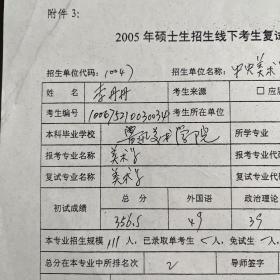 附件3：
2005年硕士生招生线下考生复试
招生单位代码：10047 招生单位名称：中央美术
姓名 李丹丹 考生来源 □应届
考生编号 100675210030034 考生所在单位
本科毕业学校 美术学院 所学专业
报考专业名称 美术学 报考专业代
复试专业名称 美术学 复试专业代码
初试成绩 总分 外国语 政治理论
356.5 49 39
本专业招生规模 111 人，已录取单考生 人，免试生 人，
总分在本专业中所排名次 2 导师签字